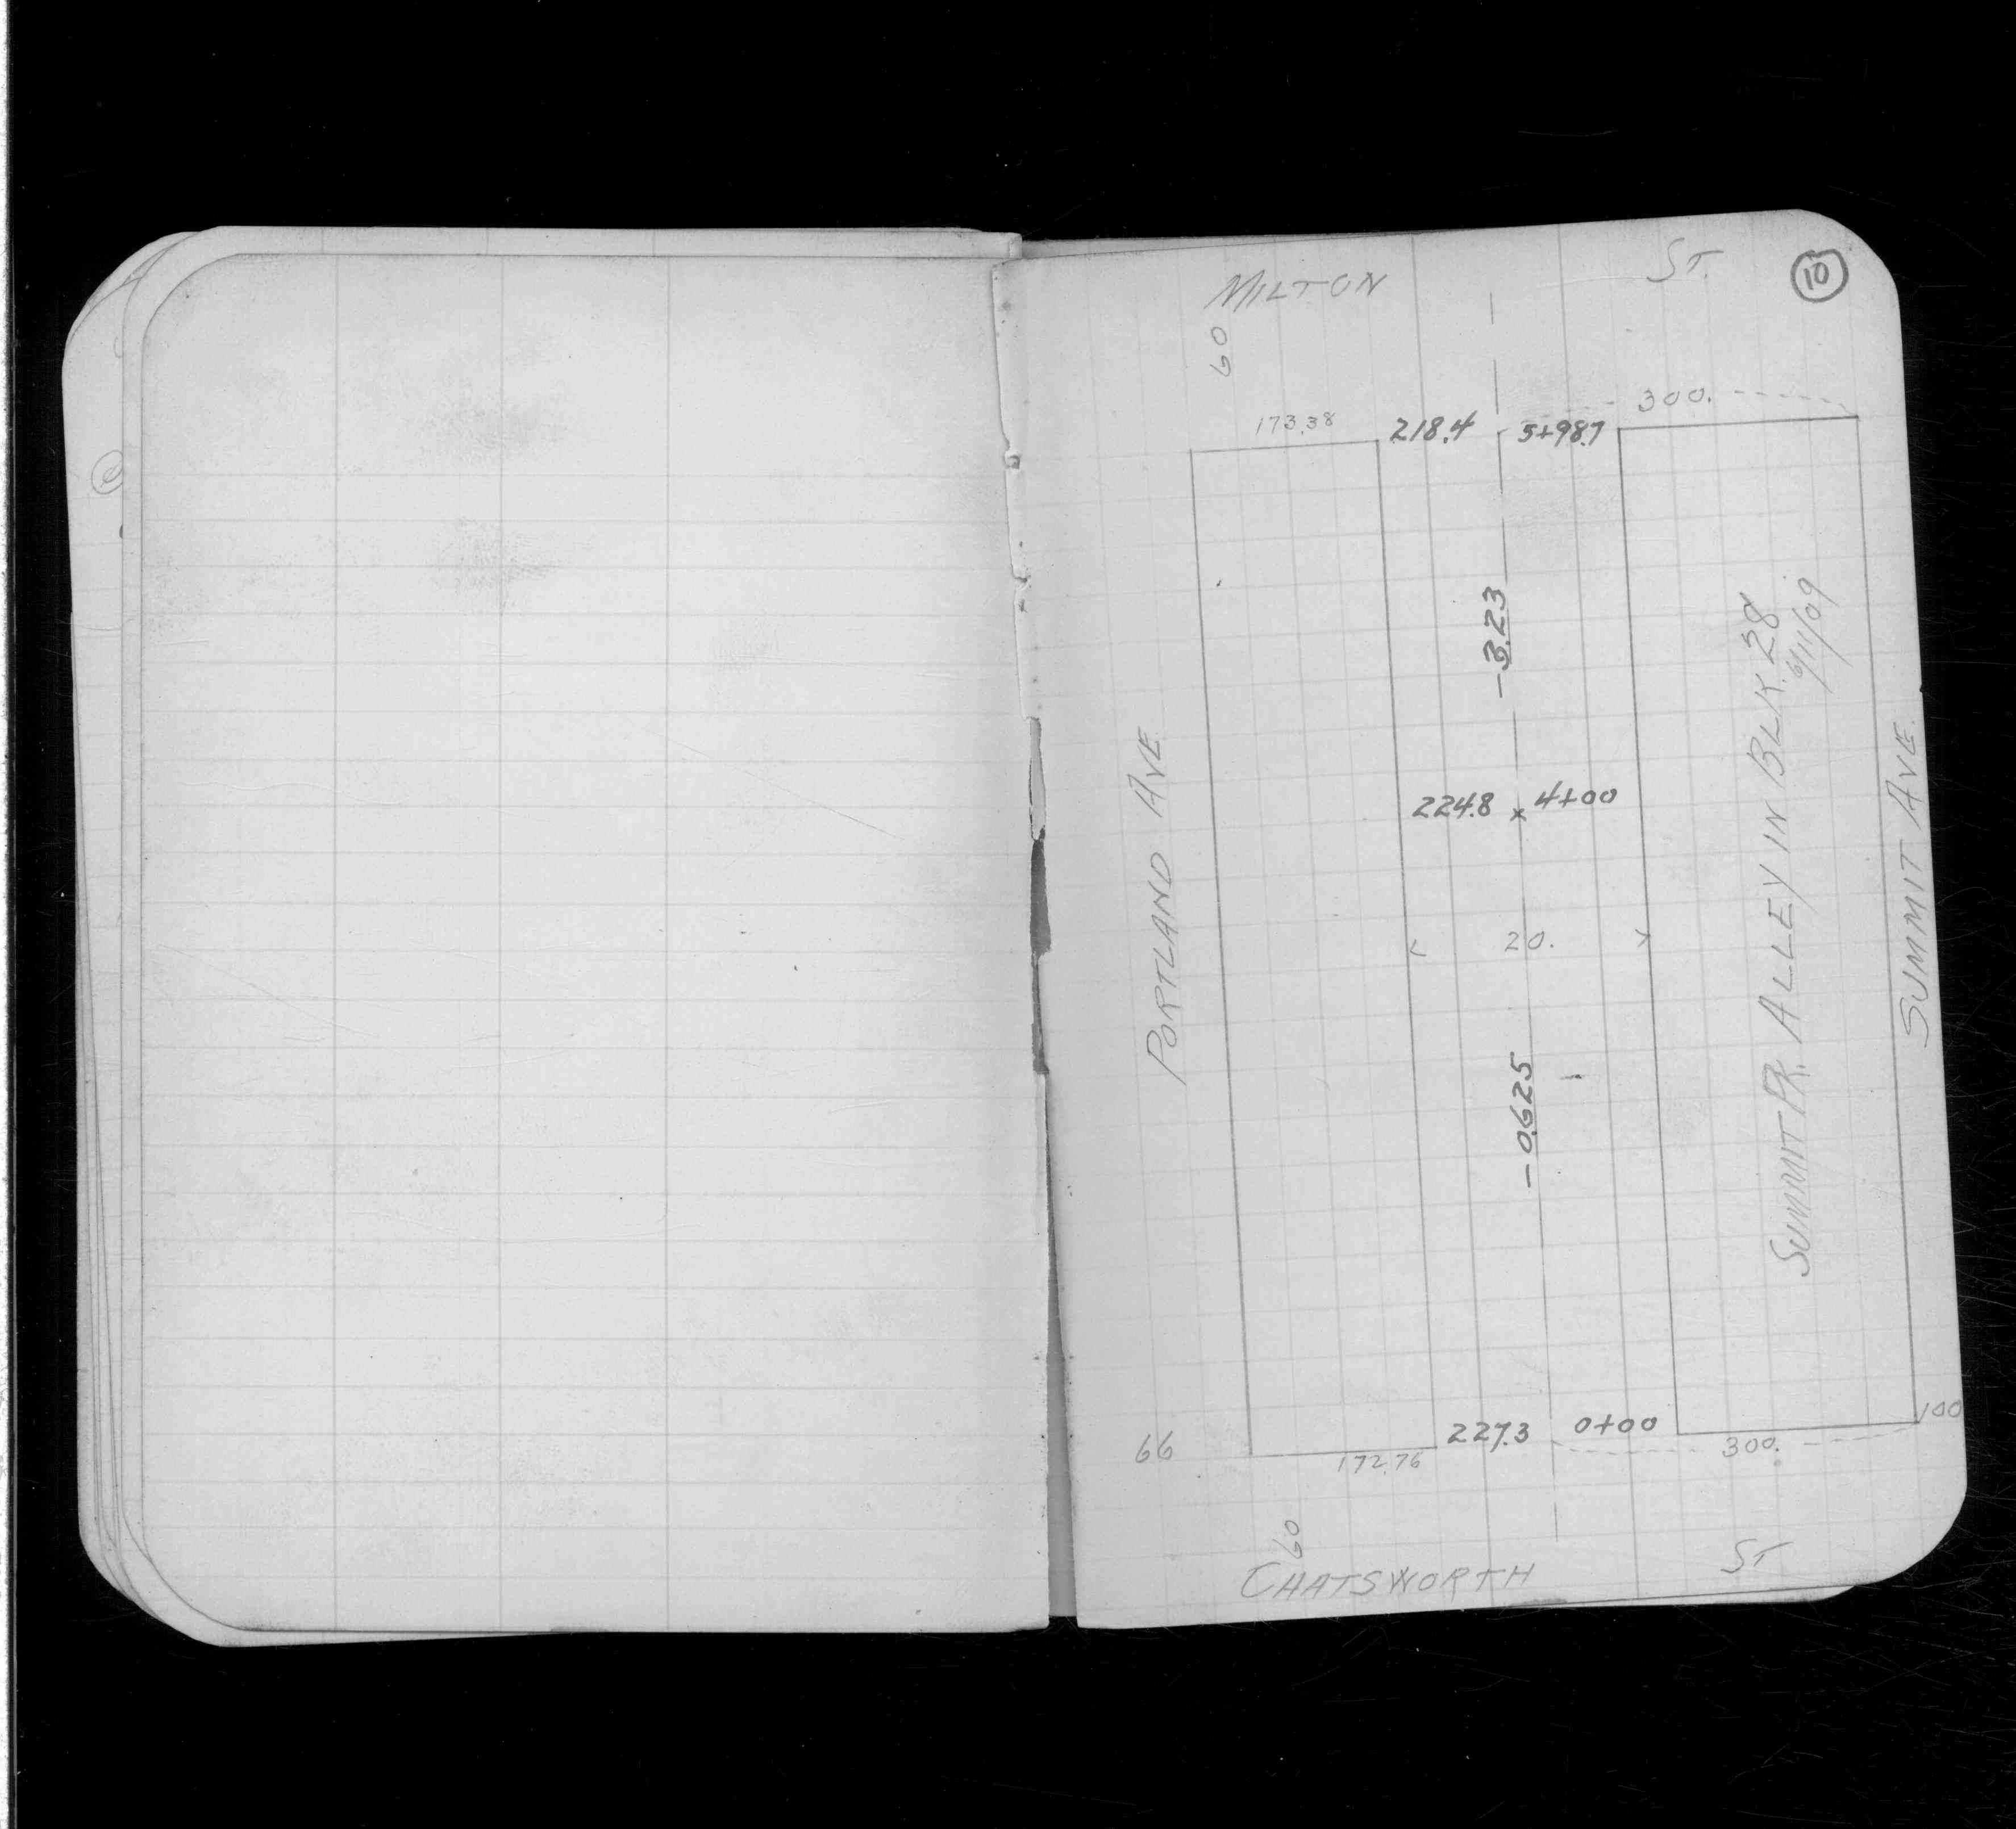 MILTON ST. 10
60
300.
173.38 218.4 5+98.7
-3.23
SUMMIT PK. ALLEY IN BLK. 28
6/11/09
PORTLAND AVE.
SUMMIT AVE.
224.8 x 4+00
20.
-0.625
227.3 0+00 100
66 172.76 300.
60
CHATSWORTH ST